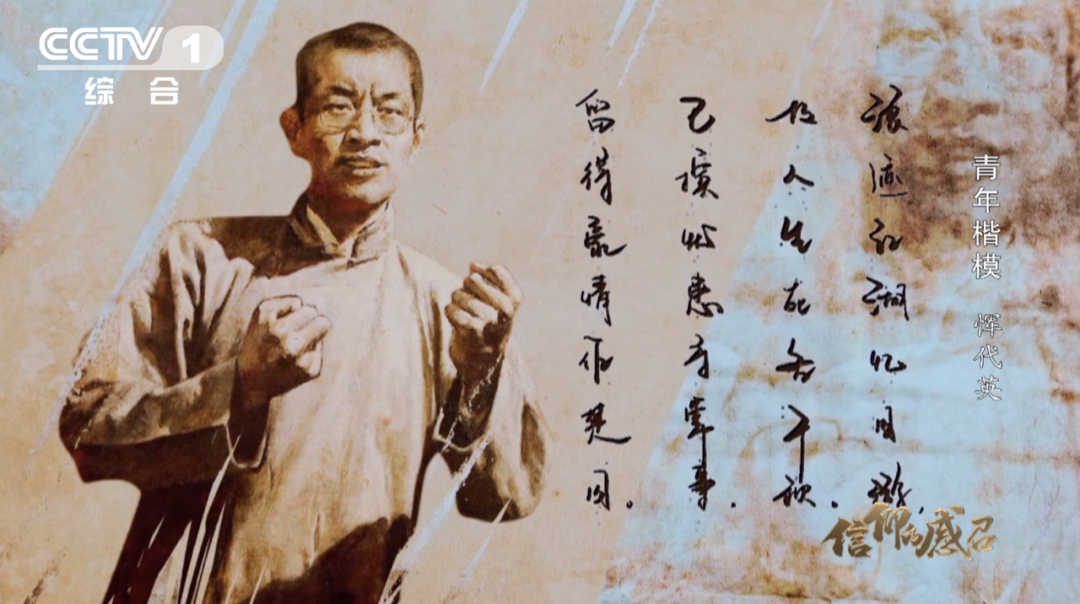 CCTV 1
综合
青年楷模 恽代英
浪迹江湖忆旧游,
故人生死各千秋。
已摈忧患寻常事,
留得豪情作楚囚。
信仰的感召